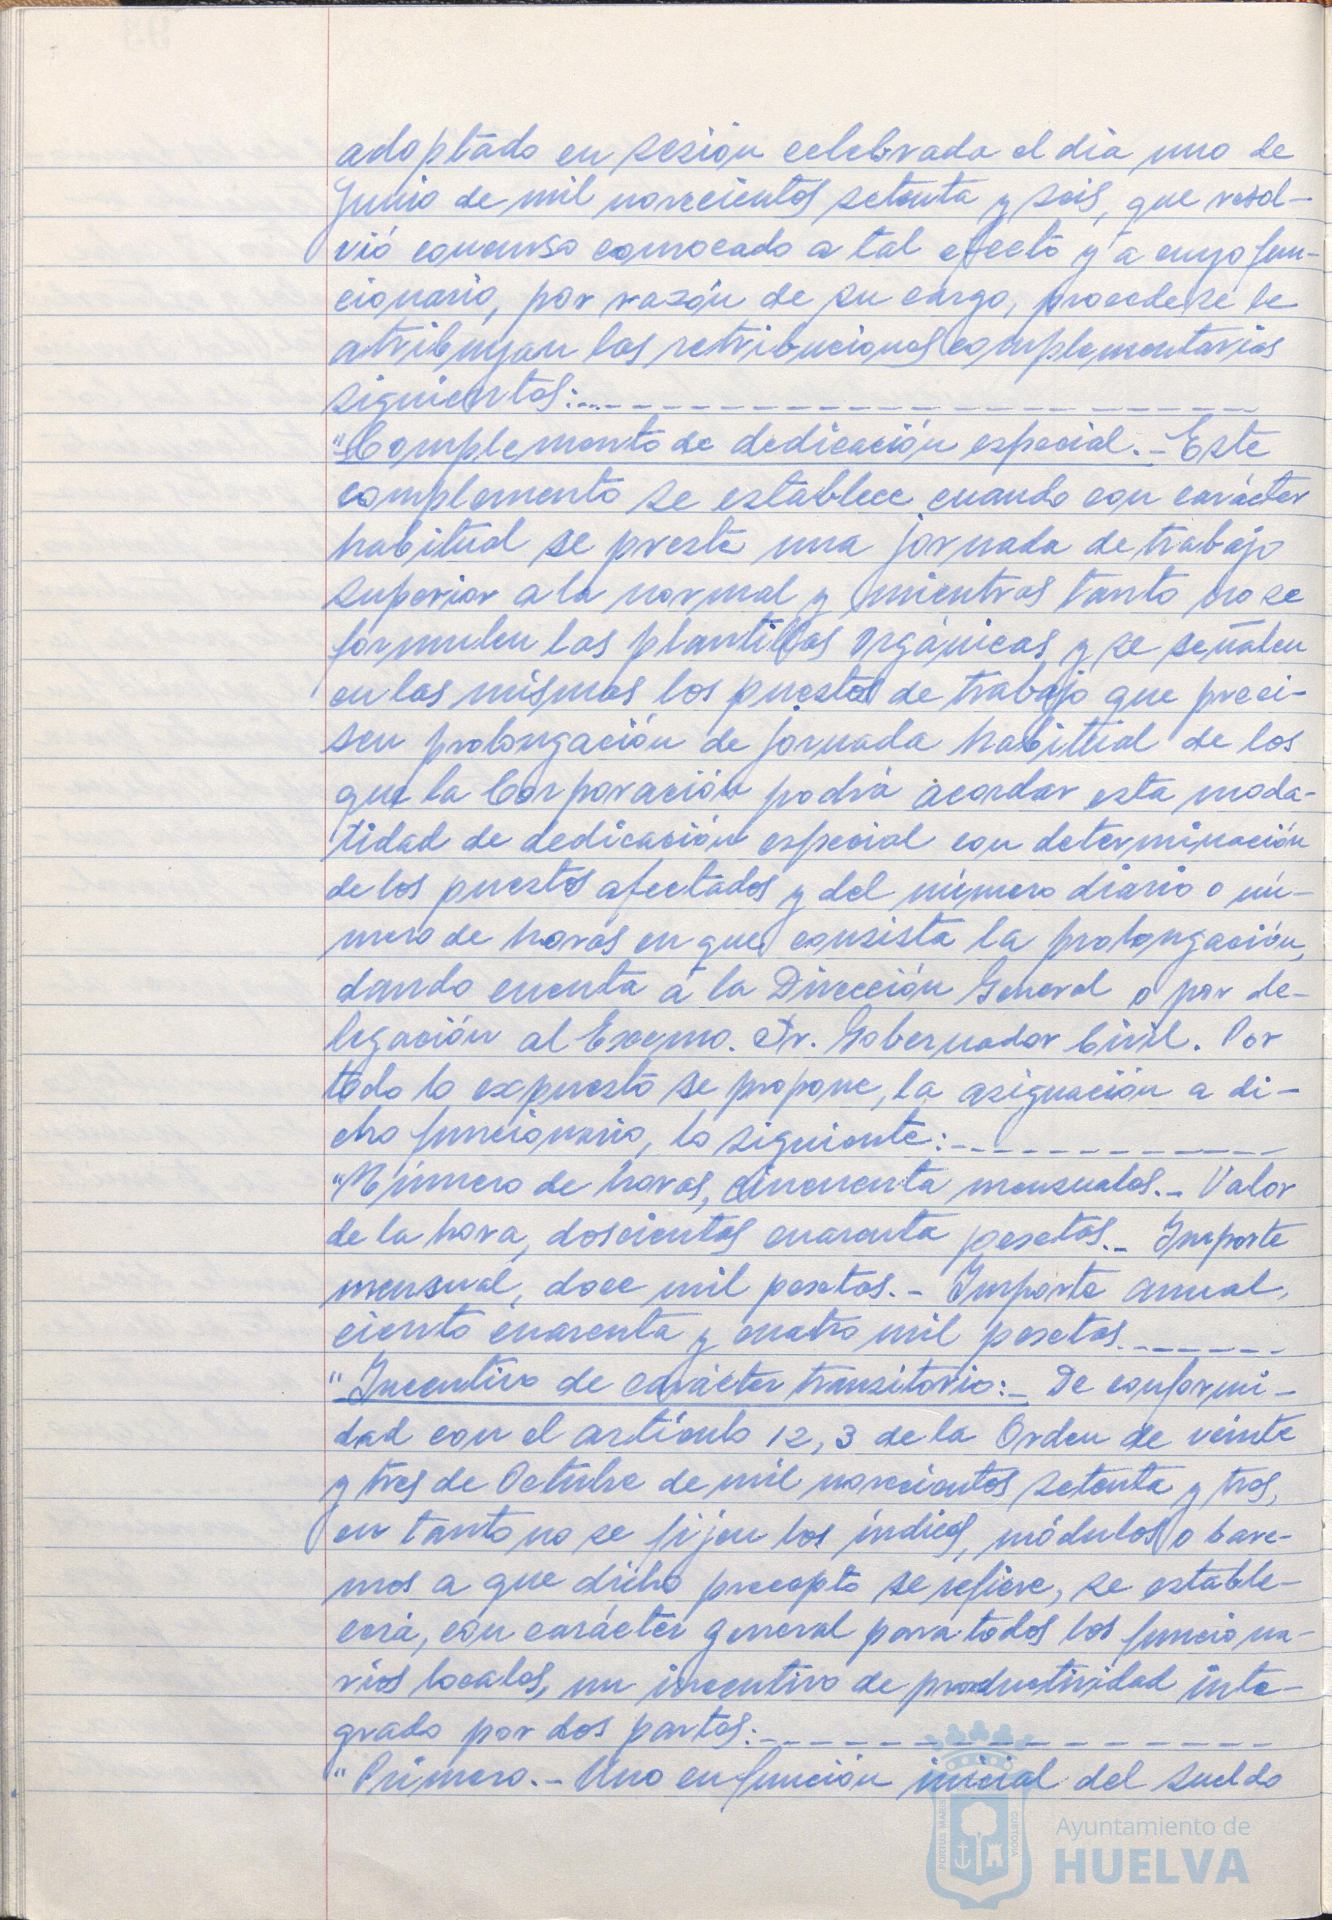 adoptado en sesión celebrada el dia uno de
Junio de mil novecientos setenta y seis, que resol-
vió concurso convocado a tal efecto y a cuyo fun-
cionario, por razón de su cargo, procede se le
atribuyan las retribuciones complementarias
siguientes:
"Complemento de dedicación especial.- Este
complemento se establece cuando con carácter
habitual se preste una jornada de trabajo
superior a la normal y mientras tanto no se
formulen las plantillas orgánicas y se señalen
en las mismas los puestos de trabajo que preci-
sen prolongación de jornada habitual de los
que la Corporación podrá acordar esta moda-
lidad de dedicación especial con determinación
de los puestos afectados y del número diario o nú-
mero de horas en que consista la prolongación,
dando cuenta a la Dirección General o por de-
legación al Excmo. Sr. Gobernador Civil. Por
todo lo expuesto se propone, la asignación a di-
cho funcionario, lo siguiente:-
"Número de horas, cincuenta mensuales.- Valor
de la hora, doscientas cuarenta pesetas.- Importe
mensual, doce mil pesetas.- Importe anual,
ciento cuarenta y cuatro mil pesetas
"Incentivo de carácter transitorio:- De conformi-
dad con el artículo 12,3 de la Orden de veinte
y tres de Octubre de mil novecientos setenta y tres,
en tanto no se fijen los índices, módulos o bare-
mos a que dicho precepto se refiere, se estable-
cerá, con carácter general para todos los funciona-
rios locales, un incentivo de productividad inte-
grado por dos partes:-
"Primero.- Uno en función inicial del sueldo
PORTUS MARIS
CUSTODIA
Ayuntamiento de
HUELVA